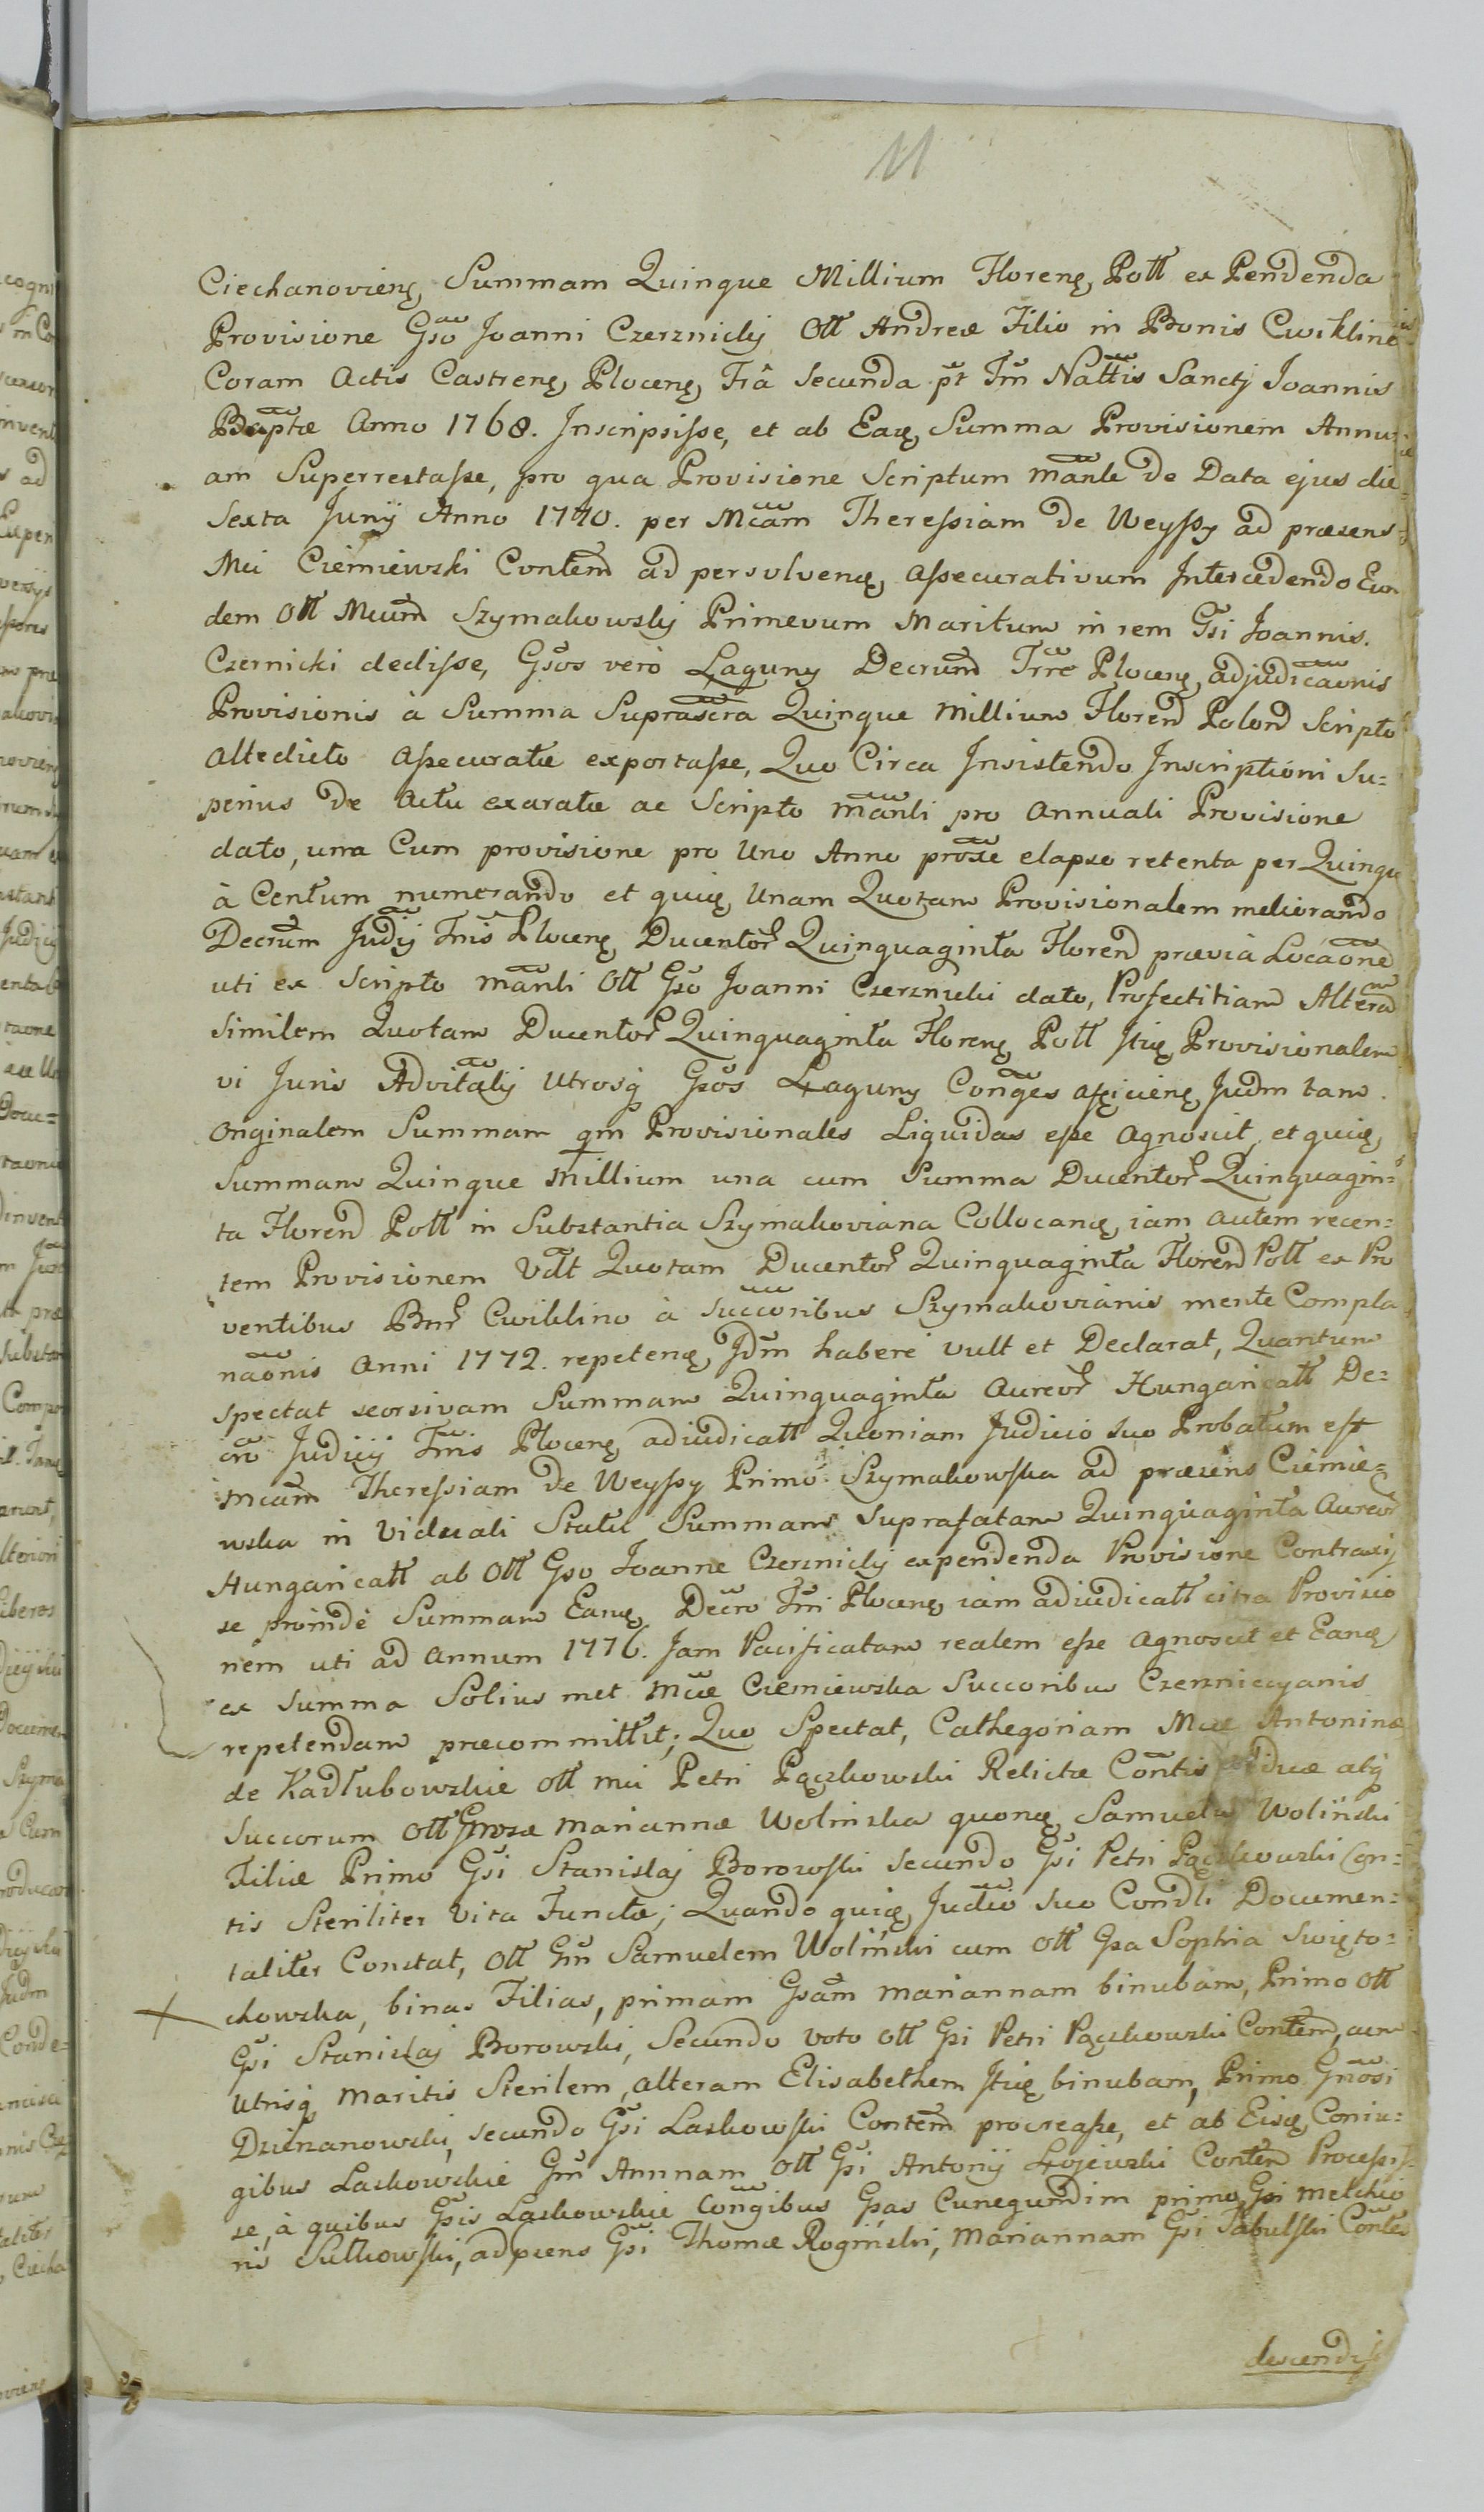 11
Ciechanovieñ, Summam Quinque Millium Florenę, Poll ex Pendenda
Provisione Gso Joanni Czerznicky Oll Andreæ Filio in Bonis Cwiklino
Coram Actis Castrenę, Plocenę, Fiâ Secunda pt Fm Nattis Sanctj Joannis
Baptæ Anno 1768. Inscripsisse, et ab Eaę, Summa Provisionem Annu-
am Superrestasse, pro qua Provisione Scriptum manle de Data ejus die
Sexta Junij Anno 1770. per Mcam Theressiam de Weyssy ad præsens
Mci Ciemiewski Contem ad persolvenę, assecurativum Intercedendo Eun
dem Oll Mcum Szymakowsky Primevum Maritum in rem Gsi Joannis.
Czernicki dedisse, Gsos verò Laguny Decrum Trre Plocenę, adjudicaonis
Provisionis à Summa Suprascra Quinque Millium Floreñ Poloñ Scripto
Altedicto assecuratæ exportasse, Quo Circa Insistendo Inscriptioni Su=
perius de Actu exaratæ ac Scripto manli pro Annuali Provisione
dato, una Cum provisione pro Uno Anno proxe elapso retenta per Quinque
à Centum numerando et quię, Unam Quotam Provisionalem meliorando
Decrum Judij Tnis Plocenę, Ducentor Quinquaginta Floreñ prævia Locaone
uti ex Scripto manli Oll Gso Joanni Czerznicki dato, Profectitiam Alteram
Similem Quotam Ducentor Quinquaginta Florenę, Poll Itię, Provisionalem
vi Juris Advitalij Utrosq Gsos Laguny Conges afficienę, Judm tam
Originalem Summam qm Provisionales Liquidas esse Agnoscit, et quię,
Summam Quinque Millium una cum Summa Ducentor Quinquagin=
ta Floreñ Poll in Substantia Szymakoviana Collocanę, iam autem recen=
tem Provisionem Vdlt Quotam Ducentor Quinquaginta Floreñ Poll ex Pro
ventibus Bnr Cwiklino à Succoribus Szymakovianis mente Compla
naonis Anni 1772. repetenę, Idm habere vult et Declarat, Quantum
Spectat seorsivam Summam Quinquaginta Aureor Hungaricall De=
cro Judicij Tnis Plocenę, adiudicall Quoniam Judicio suo Probatum est
Mcam Theressiam de Weyssy Primo Szymakowska ad præsens Ciemie=
wska in Viduali Statu Summam Suprafatam Quinquaginta Aureor
Hungaricall ab Oll Gso Joanne Czerznicky expendenda Provisione Contraxis
se proinde Summam Eanę, Decro Tni Plocenę, iam adiudicall citra Provisio
nem uti ad Annum 1776. Jam Pacificatam realem esse Agnoscit et Eanę
ex Summa Solius met Mcæ Ciemiewska Succoribus Czerznicyanis
repetendam præcommittit; Quo Spectat, Cathegoriam Mcæ Antoninæ
de Kadłubowskie Oll Mci Petri Pączkowski Relictæ Contis Viduæ atq
Succorum Oll Gnosæ Mariannæ Wolinska quonę, Samuelis Woliński
Filiæ Primo Gsi Stanislaj Borowski Secundo Gsi Petri Pączkowski Con=
tis Steriliter Vita Functæ; Quando quię, Judio suo Condli Documen=
taliter Constat, Oll Gm Samuelem Woliński cum Oll Gsa Sophia Święto=
chowska, binas Filias, primam Gsam Mariannam binubam, Primo Oll
Gsi Stanislaj Borowski, Secundo voto Oll Gsi Petri Pączkowski Contem, cum
Utrisq Maritis Sterilem, alteram Elisabethem Itię, binubam, Primo Gnosi
Dzierzanowski, secundo Gsi Laskowski Contem procreasse, et ab Eisę, Coniu=
gibus Laskowskie Gm Annnam Oll Gsi Antonij Łojewski Contem Processis
se, à quibus Gsis Laskowskie Congibus Gsas Cunegundim primo Gsi Melchio
ris Sutkowski, ad præns Gsi Thomæ Roginski, Mariannam Gsi Tabulski Contes
descendis